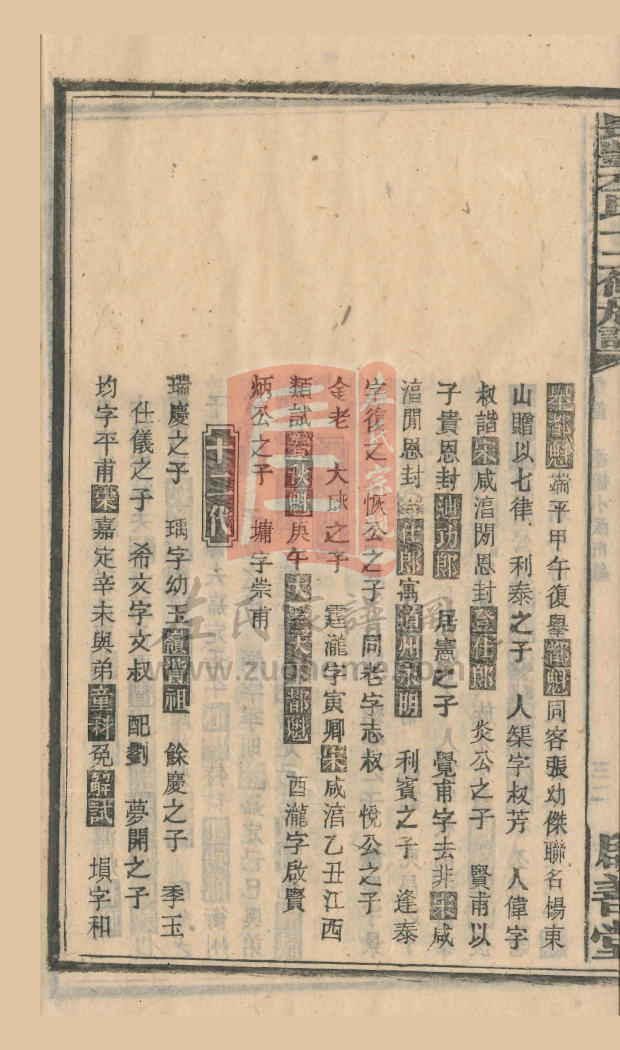 舉都魁端平甲午復舉都魁同容張幼傑聯名楊東
山贈以七律　利泰之子　人榘字叔芳　人偉字
叔諧宋咸淯閒恩封登仕郎　炎公之子　賢甫以
子貴恩封迪功郎　居憲之子　覺甫字去非宋咸
淯閒恩封登仕郎寓道州永明　利賓之子　逢泰
字復之　恢公之子　同老字志叔　悅公之子
金老　大球之子　霆瀧字寅卿宋咸淯乙丑江西
類試秋魁庚午大都魁　酉瀧字啟賢
炳公之子　墉字崇甫
十二代
瑞慶之子　瑀字幼玉嶺背祖　餘慶之子　季玉
仕儀之子　希文字文叔　配劉　夢開之子
均字平甫宋嘉定辛未與弟童科免解試　塤字和
善堂
左氏家譜网
www.zuohome.com